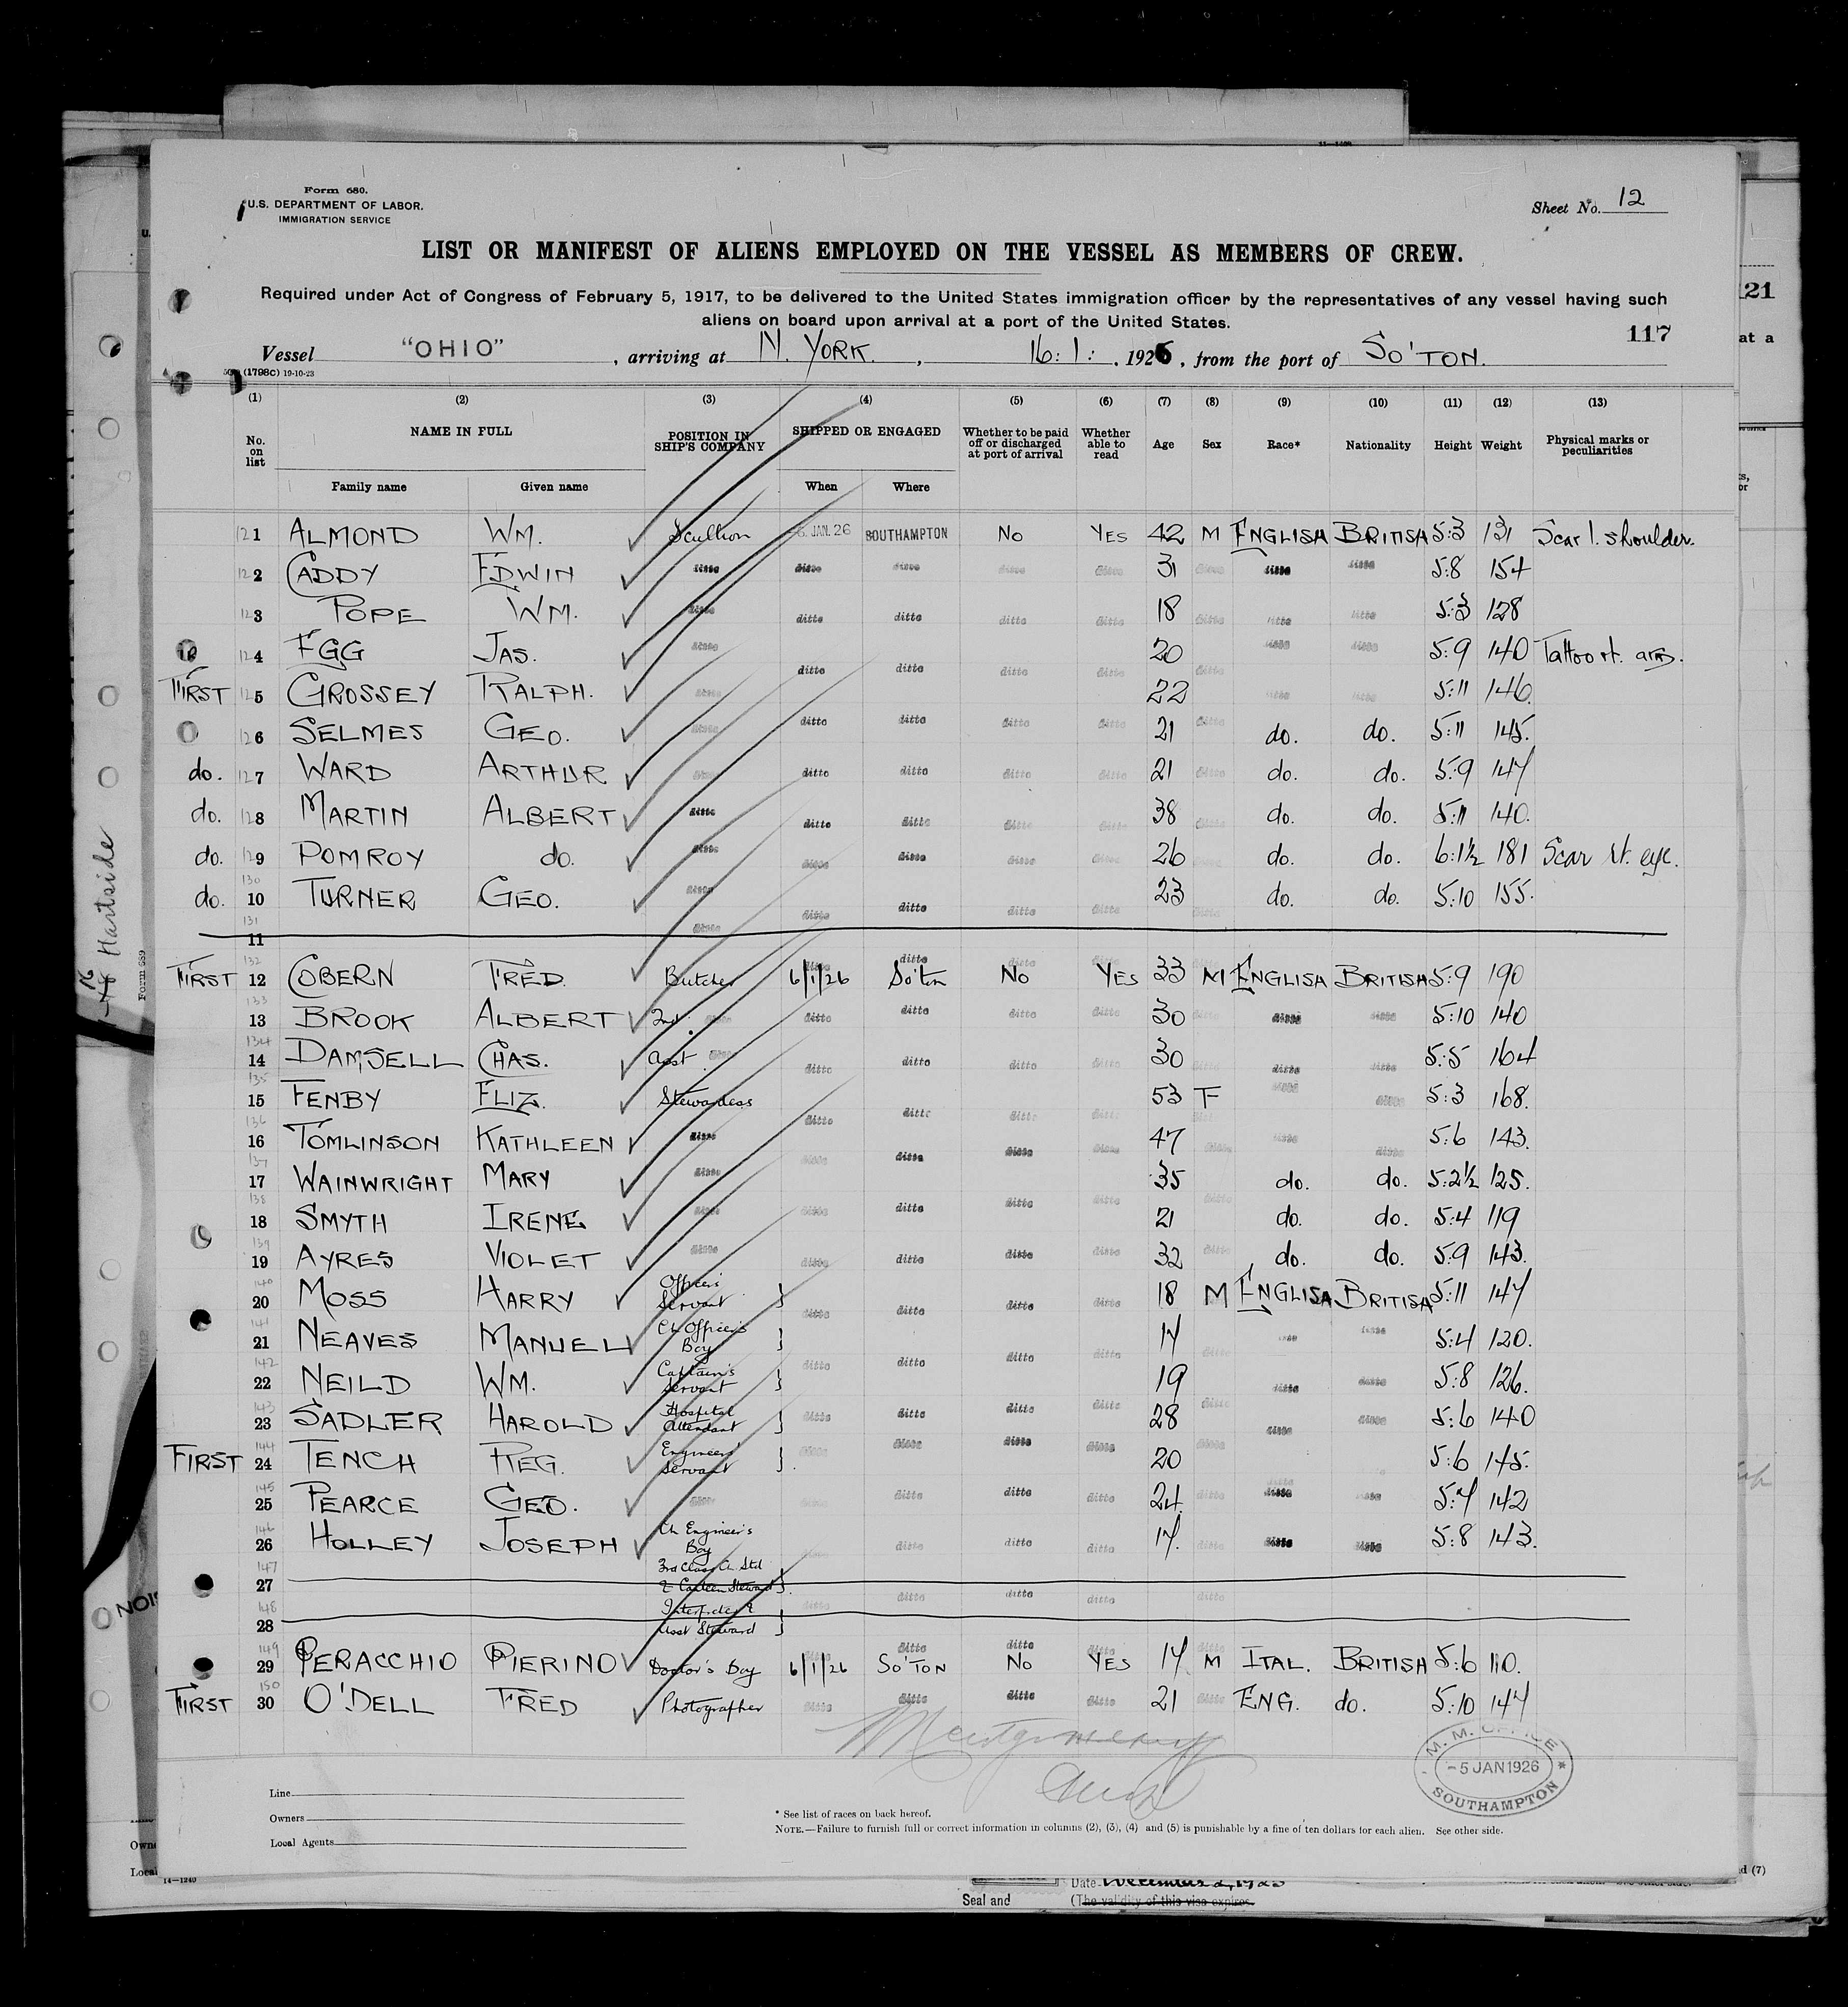 Form 680.
U.S. DEPARTMENT OF LABOR.
IMMIGRATION SERVICE
Sheet No. 12
LIST OR MANIFEST OF ALIENS EMPLOYED ON THE VESSEL AS MEMBERS OF CREW.
Required under Act of Congress of February 5, 1917, to be delivered to the United States immigration officer by the representatives of any vessel having such
aliens on board upon arrival at a port of the United States.
117
Vessel "OHIO", arriving at N. YORK., 16:1:, 1926, from the port of SO'TON.
(1798C) 19-10-23
(1) (2) (3) (4) (5) (6) (7) (8) (9) (10) (11) (12) (13)
No. on list NAME IN FULL POSITION IN SHIP'S COMPANY SHIPPED OR ENGAGED Whether to be paid off or discharged at port of arrival Whether able to read Age Sex Race* Nationality Height Weight Physical marks or peculiarities
Family name Given name When Where
121 ALMOND WM. Scullion 5. JAN. 26 SOUTHAMPTON No YES 42 M ENGLISH BRITISH 5:3 131 Scar l. shoulder.
122 CADDY EDWIN ditto ditto ditto ditto ditto 31 ditto ditto ditto 5:8 154
123 POPE WM. ditto ditto ditto ditto ditto 18 ditto ditto ditto 5:3 128
124 EGG JAS. ditto ditto ditto ditto ditto 20 ditto ditto 5:9 140 Tattoo rt. arm.
FIRST 125 GROSSEY RALPH. ditto ditto ditto ditto ditto 22 ditto ditto 5:11 146.
126 SELMES GEO. ditto ditto ditto ditto ditto 21 ditto do. do. 5:11 145.
do. 127 WARD ARTHUR ditto ditto ditto ditto ditto 21 ditto do. do. 5:9 147
do. 128 MARTIN ALBERT ditto ditto ditto ditto ditto 38 ditto do. do. 5:11 140.
do. 129 POMROY do. ditto ditto ditto ditto ditto 26 do. do. 6:1½ 181 Scar rt. eye.
do. 130 10 TURNER GEO. ditto ditto ditto ditto ditto 23 ditto do. do. 5:10 155.
131 11 ditto
FIRST 132 12 COBERN FRED. Butcher 6/1/26 So'ton No YES 33 M ENGLISH BRITISH 5:9 190
133 13 BROOK ALBERT 2nd ditto ditto ditto ditto ditto 30 ditto ditto ditto 5:10 140
134 14 DAMSELL CHAS. Asst. ditto ditto ditto ditto ditto 30 ditto ditto 5:5 164
135 15 FENBY ELIZ. Stewardess ditto ditto ditto ditto 53 F ditto ditto 5:3 168.
136 16 TOMLINSON KATHLEEN ditto ditto ditto ditto ditto 47 ditto ditto ditto 5:6 143.
137 17 WAINWRIGHT MARY ditto 35 do. do. 5:2½ 125.
138 18 SMYTH IRENE ditto ditto ditto ditto ditto 21 ditto do. do. 5:4 119
139 19 AYRES VIOLET ditto ditto ditto ditto ditto 32 ditto do. do. 5:9 143.
140 20 MOSS HARRY Officers' Servant ditto ditto ditto ditto 18 M ENGLISH BRITISH 5:11 147
141 21 NEAVES MANUEL Ch Officer's Boy ditto ditto ditto ditto 17 ditto ditto ditto 5:4 120.
142 22 NEILD WM. Captain's Servant 19 ditto ditto 5:8 126.
143 23 SADLER HAROLD Hospital Attendant ditto ditto ditto ditto 28 ditto ditto ditto 5:6 140
FIRST 144 24 TENCH REG. Engineers' Servant ditto ditto ditto ditto 20 ditto 5:6 145.
145 25 PEARCE GEO. ditto ditto ditto ditto 24. ditto ditto ditto 5:7 142
146 26 HOLLEY JOSEPH Ch Engineer's Boy ditto ditto ditto 17. ditto ditto ditto 5:8 143.
147 27 3rd Class Ch. Std & Canteen Steward ditto ditto ditto ditto
148 28 Interpreter & Asst Steward
149 29 PERACCHIO PIERINO Doctor's Boy 6/1/26 SO'TON No YES 17 M ITAL. BRITISH 5:6 110.
FIRST 150 30 O'DELL FRED Photographer ditto ditto ditto ditto 21 ditto ENG. do. 5:10 147
M. M. OFFICE
-5 JAN 1926
SOUTHAMPTON
Line
Owners
Local Agents
* See list of races on back hereof.
NOTE.—Failure to furnish full or correct information in columns (2), (3), (4) and (5) is punishable by a fine of ten dollars for each alien. See other side.
14—1240
Seal and
Date
(The validity of this visa expires
Hartside
Form 689
121
at a